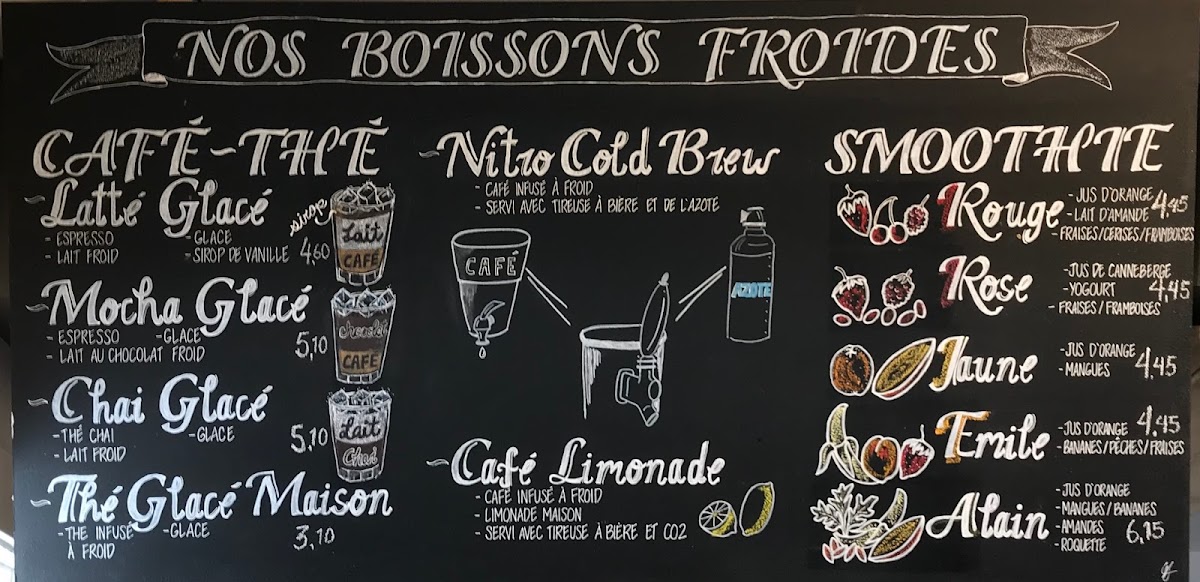 NOS BOISSONS FROIDES
CAFÉ-THÉ
- Latté Glacé
- ESPRESSO - GLACE
- LAIT FROID - SIROP DE VANILLE 4,60
sirop
Lait
CAFÉ
- Mocha Glacé
- ESPRESSO - GLACE
- LAIT AU CHOCOLAT FROID 5,10
chocolat
CAFÉ
- Chai Glacé
- THÉ CHAI - GLACE
- LAIT FROID 5,10
Lait
Chai
- Thé Glacé Maison
- THE INFUSÉ - GLACE
À FROID 3,10
- Nitro Cold Brew
- CAFÉ INFUSÉ À FROID
- SERVI AVEC TIREUSE À BIÈRE ET DE L'AZOTE
CAFÉ
AZOTE
- Café Limonade
- CAFÉ INFUSÉ À FROID
- LIMONADE MAISON
- SERVI AVEC TIREUSE À BIÈRE ET CO2
SMOOTHIE
Rouge
- JUS D'ORANGE
- LAIT D'AMANDE 4,45
- FRAISES/CERISES/FRAMBOISES
Rose
- JUS DE CANNEBERGE
- YOGOURT 4,45
- FRAISES/FRAMBOISES
Jaune
- JUS D'ORANGE
- MANGUES 4,45
Emile
- JUS D'ORANGE 4,45
- BANANES/PÊCHES/FRAISES
Alain
- JUS D'ORANGE
- MANGUES/BANANES
- AMANDES 6,15
- ROQUETTE